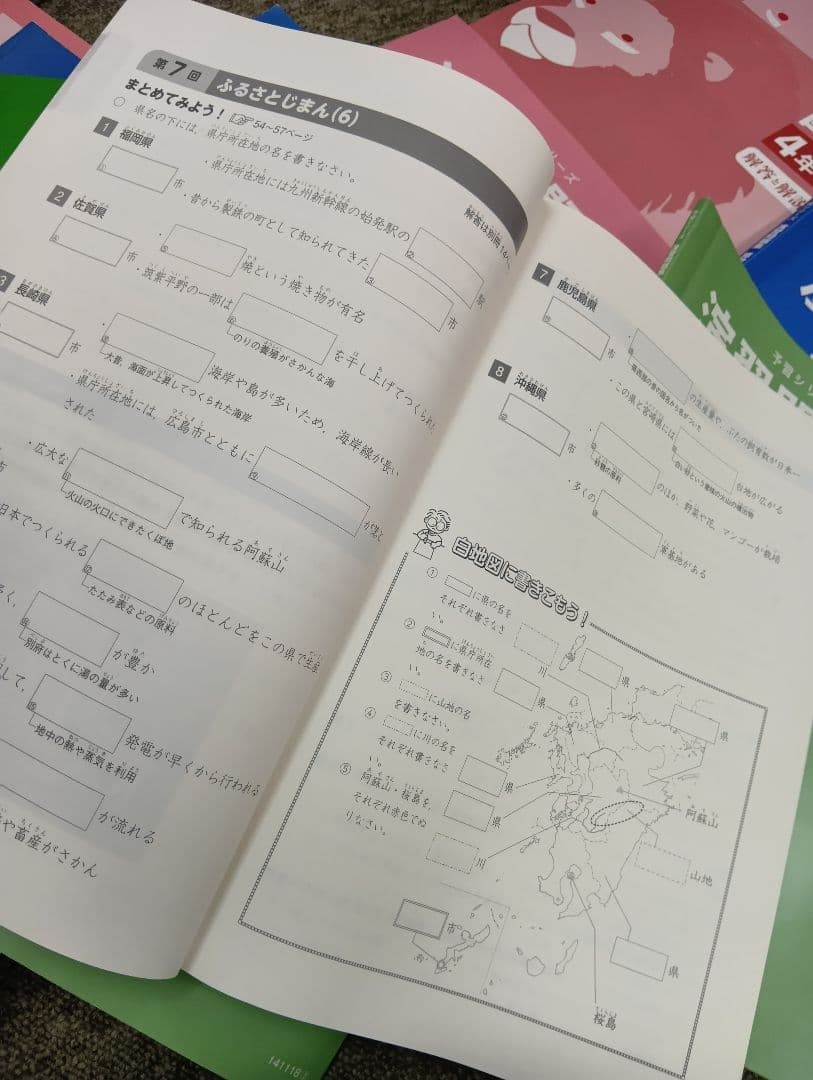 第7回 ふるさとじまん(6)
まとめてみよう! 54~57ページ
解答は別冊14
○ 県名の下には,県庁所在地の名を書きなさい。
1 福岡県
市
・県庁所在地には九州新幹線の始発駅の
駅
・昔から製鉄の町として知られてきた
市
2 佐賀県
市
焼という焼き物が有名
・筑紫平野の一部は
を干し上げてつくられ
のりの養殖がさかんな海
3 長崎県
市
海岸や島が多いため,海岸線が長い
大昔,海面が上昇してつくられた海岸
・県庁所在地には,広島市とともに
が落と
された
・広大な
で知られる阿蘇山
火山の火口にできたくぼ地
市
日本でつくられる
のほとんどをこの県で生産
たたみ表などの原料
が豊か
別府はとくに湯の量が多い
して,
発電が早くから行われる
地中の熱や蒸気を利用
が流れる
や畜産がさかん
7 鹿児島県
市
の生産量や,ぶたの飼育数が日本一
・この県と宮崎県には
台地が広がる
8 沖縄県
市
砂糖の原料
のほか,野菜や花,マンゴーが栽培
・多くの
軍基地がある
白地図に書きこもう!
① に県の名を
それぞれ書きなさ
い。
② に県庁所在
地の名を書きなさ
い。
③ に山地の名
を書きなさい。
④ に川の名を
それぞれ書きなさ
い。
⑤ 阿蘇山・桜島を,
それぞれ赤色でぬ
りなさい。
川
県
県
県
県
県
川
阿蘇山
山地
県
市
桜島
4年
解答と解説
予習シ
演習問
141118